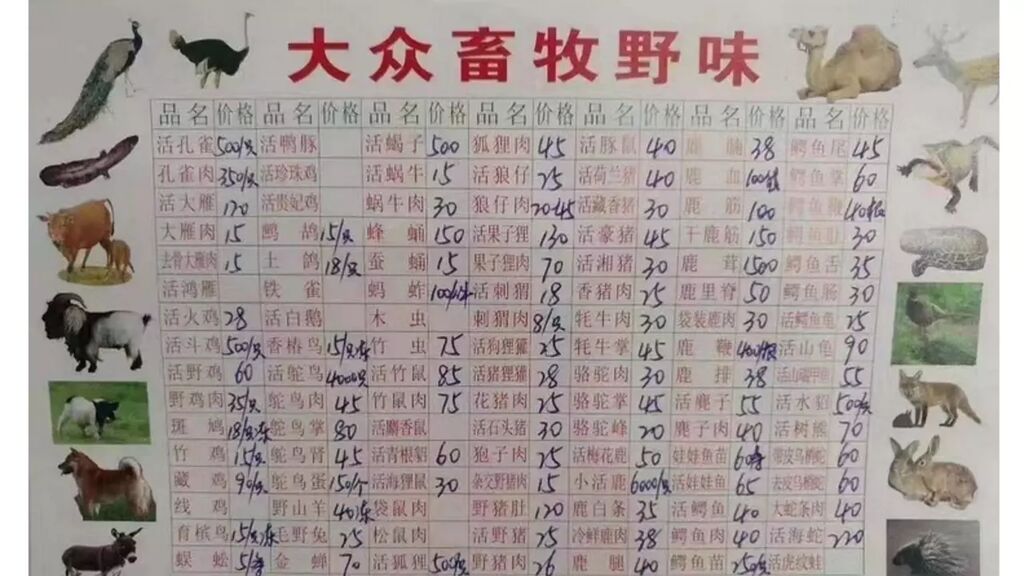 大众畜牧野味
品名 价格 品名 价格 品名 价格 品名 价格 品名 价格 品名 价格 品名 价格
活孔雀 500/只 活鸭豚 活蝎子 500 狐狸肉 45 活豚鼠 40 鹿 38 鳄鱼尾 45
孔雀肉 350/只 活珍珠鸡 活蜗牛 15 活狼仔 25 活荷兰猪 40 鹿血 鳄鱼掌 60
活大雁 120 活贵妃鸡 蜗牛肉 30 狼仔肉 20-45 活藏香猪 30 鹿筋 100 鳄鱼鞭
大雁肉 15 鹧鸪 15/只 蜂蛹 150 活果子狸 130 活豪猪 45 干鹿筋 150 鳄鱼肚 30
去骨大雁肉 15 土鸽 18/只 蚕蛹 15 果子狸肉 70 活湘猪 30 鹿茸 1500 鳄鱼舌 35
活鸿雁 铁雀 蚂蚱 活刺猬 18 香猪肉 25 鹿里脊 50 鳄鱼肠 30
活火鸡 28 活白鹅 木虫 刺猬肉 8/只 牦牛肉 30 袋装鹿肉 30 活鳄鱼龟 25
活斗鸡 500/只 香椿鸟 竹虫 75 活狗狸獾 25 牦牛掌 45 鹿鞭 活山龟 90
活野鸡 60 活鸵鸟 4000只 活竹鼠 85 活猪狸獾 28 骆驼肉 30 鹿排 38 55
野鸡肉 35/只 鸵鸟肉 45 竹鼠肉 75 花猪肉 25 骆驼掌 45 活麂子 55 活水貂 500/只
斑鸠 鸵鸟掌 80 活麝香鼠 活石头猪 30 骆驼峰 20 麂子肉 40 活树熊 70
竹鸡 15/只 鸵鸟肾 45 活青根貂 60 狍子肉 25 活梅花鹿 50 娃娃鱼苗 60 带皮乌梢蛇 60
藏鸡 90/只 鸵鸟蛋 150/个 活海狸鼠 30 杂交野猪肉 15 小活鹿 6000/只 活娃娃鱼 65 去皮乌梢蛇 60
线鸡 野山羊 袋鼠肉 野猪肚 120 鹿白条 35 活鳄鱼 40 大蛇条肉 40
育槟鸟 毛野兔 25 松鼠肉 活野猪 25 冷鲜鹿肉 38 鳄鱼肉 40 活海蛇 220
蜈蚣 金蝉 70 活狐狸 500/只 野猪肉 26 鹿腿 40 鳄鱼苗 活虎纹蛙